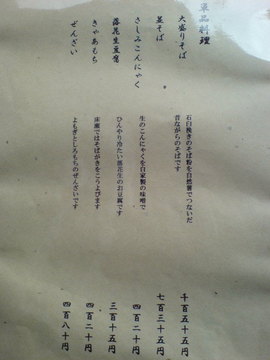 単品料理
大盛りそば 千百五十五円
石臼挽きのそば粉を自然薯でつないだ
昔ながらのそばです
並そば 七百三十五円
さしみこんにゃく 四百二十円
生のこんにゃくを自家製の味噌で
落花生豆腐 三百十五円
ひんやり冷たい落花生のお豆腐です
きゃあもち 四百二十円
床瀬ではそばがきをこうよびます
ぜんざい 四百八十円
よもぎとしろもちのぜんざいです